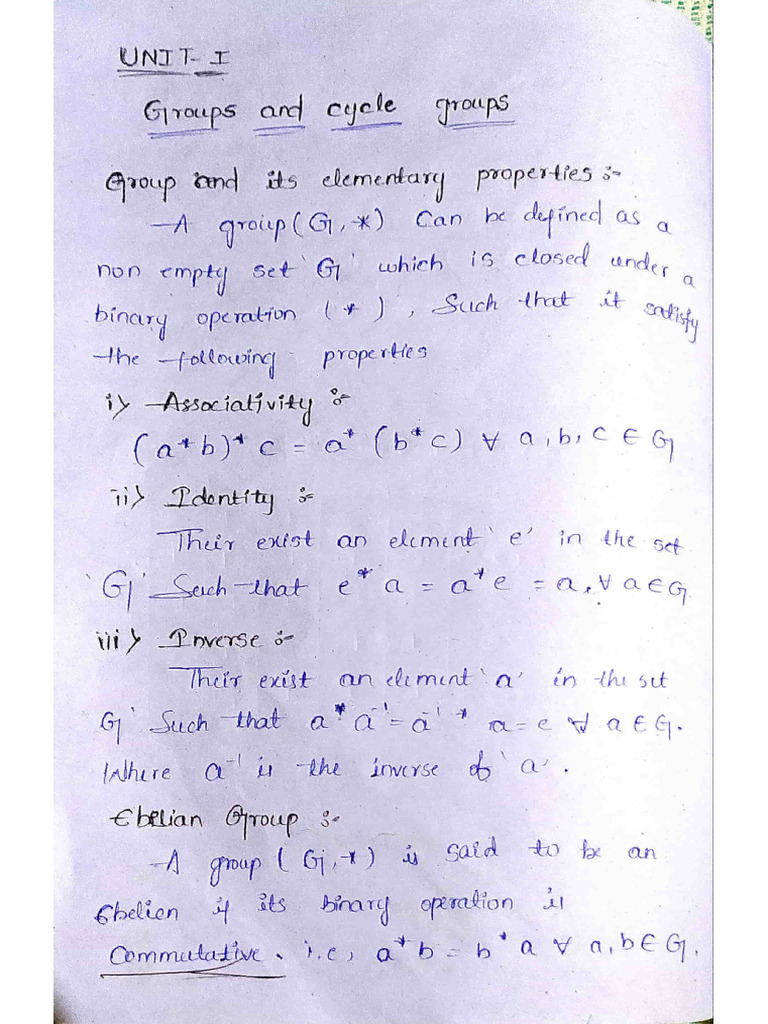 UNIT-I
Groups and cycle groups
Group and its elementary properties :-
A group (G, *) Can be defined as a
non empty set 'G' which is closed under a
binary operation (*), Such that it satisfy
the following properties
i) Associativity :-
(a*b)*c = a*(b*c) ∀ a, b, c ∈ G
ii) Identity :-
Their exist an element 'e' in the set
'G' Such that e*a = a*e = a, ∀ a ∈ G
iii) Inverse :-
Their exist an element 'a' in the set
G' Such that a*a⁻¹ = a⁻¹*a = e ∀ a ∈ G.
Where a⁻¹ is the inverse of 'a'.
Ebelian Group :-
A group (G, *) is said to be an
Ebelien if its binary operation is
Commutative. i.e, a*b = b*a ∀ a, b ∈ G.